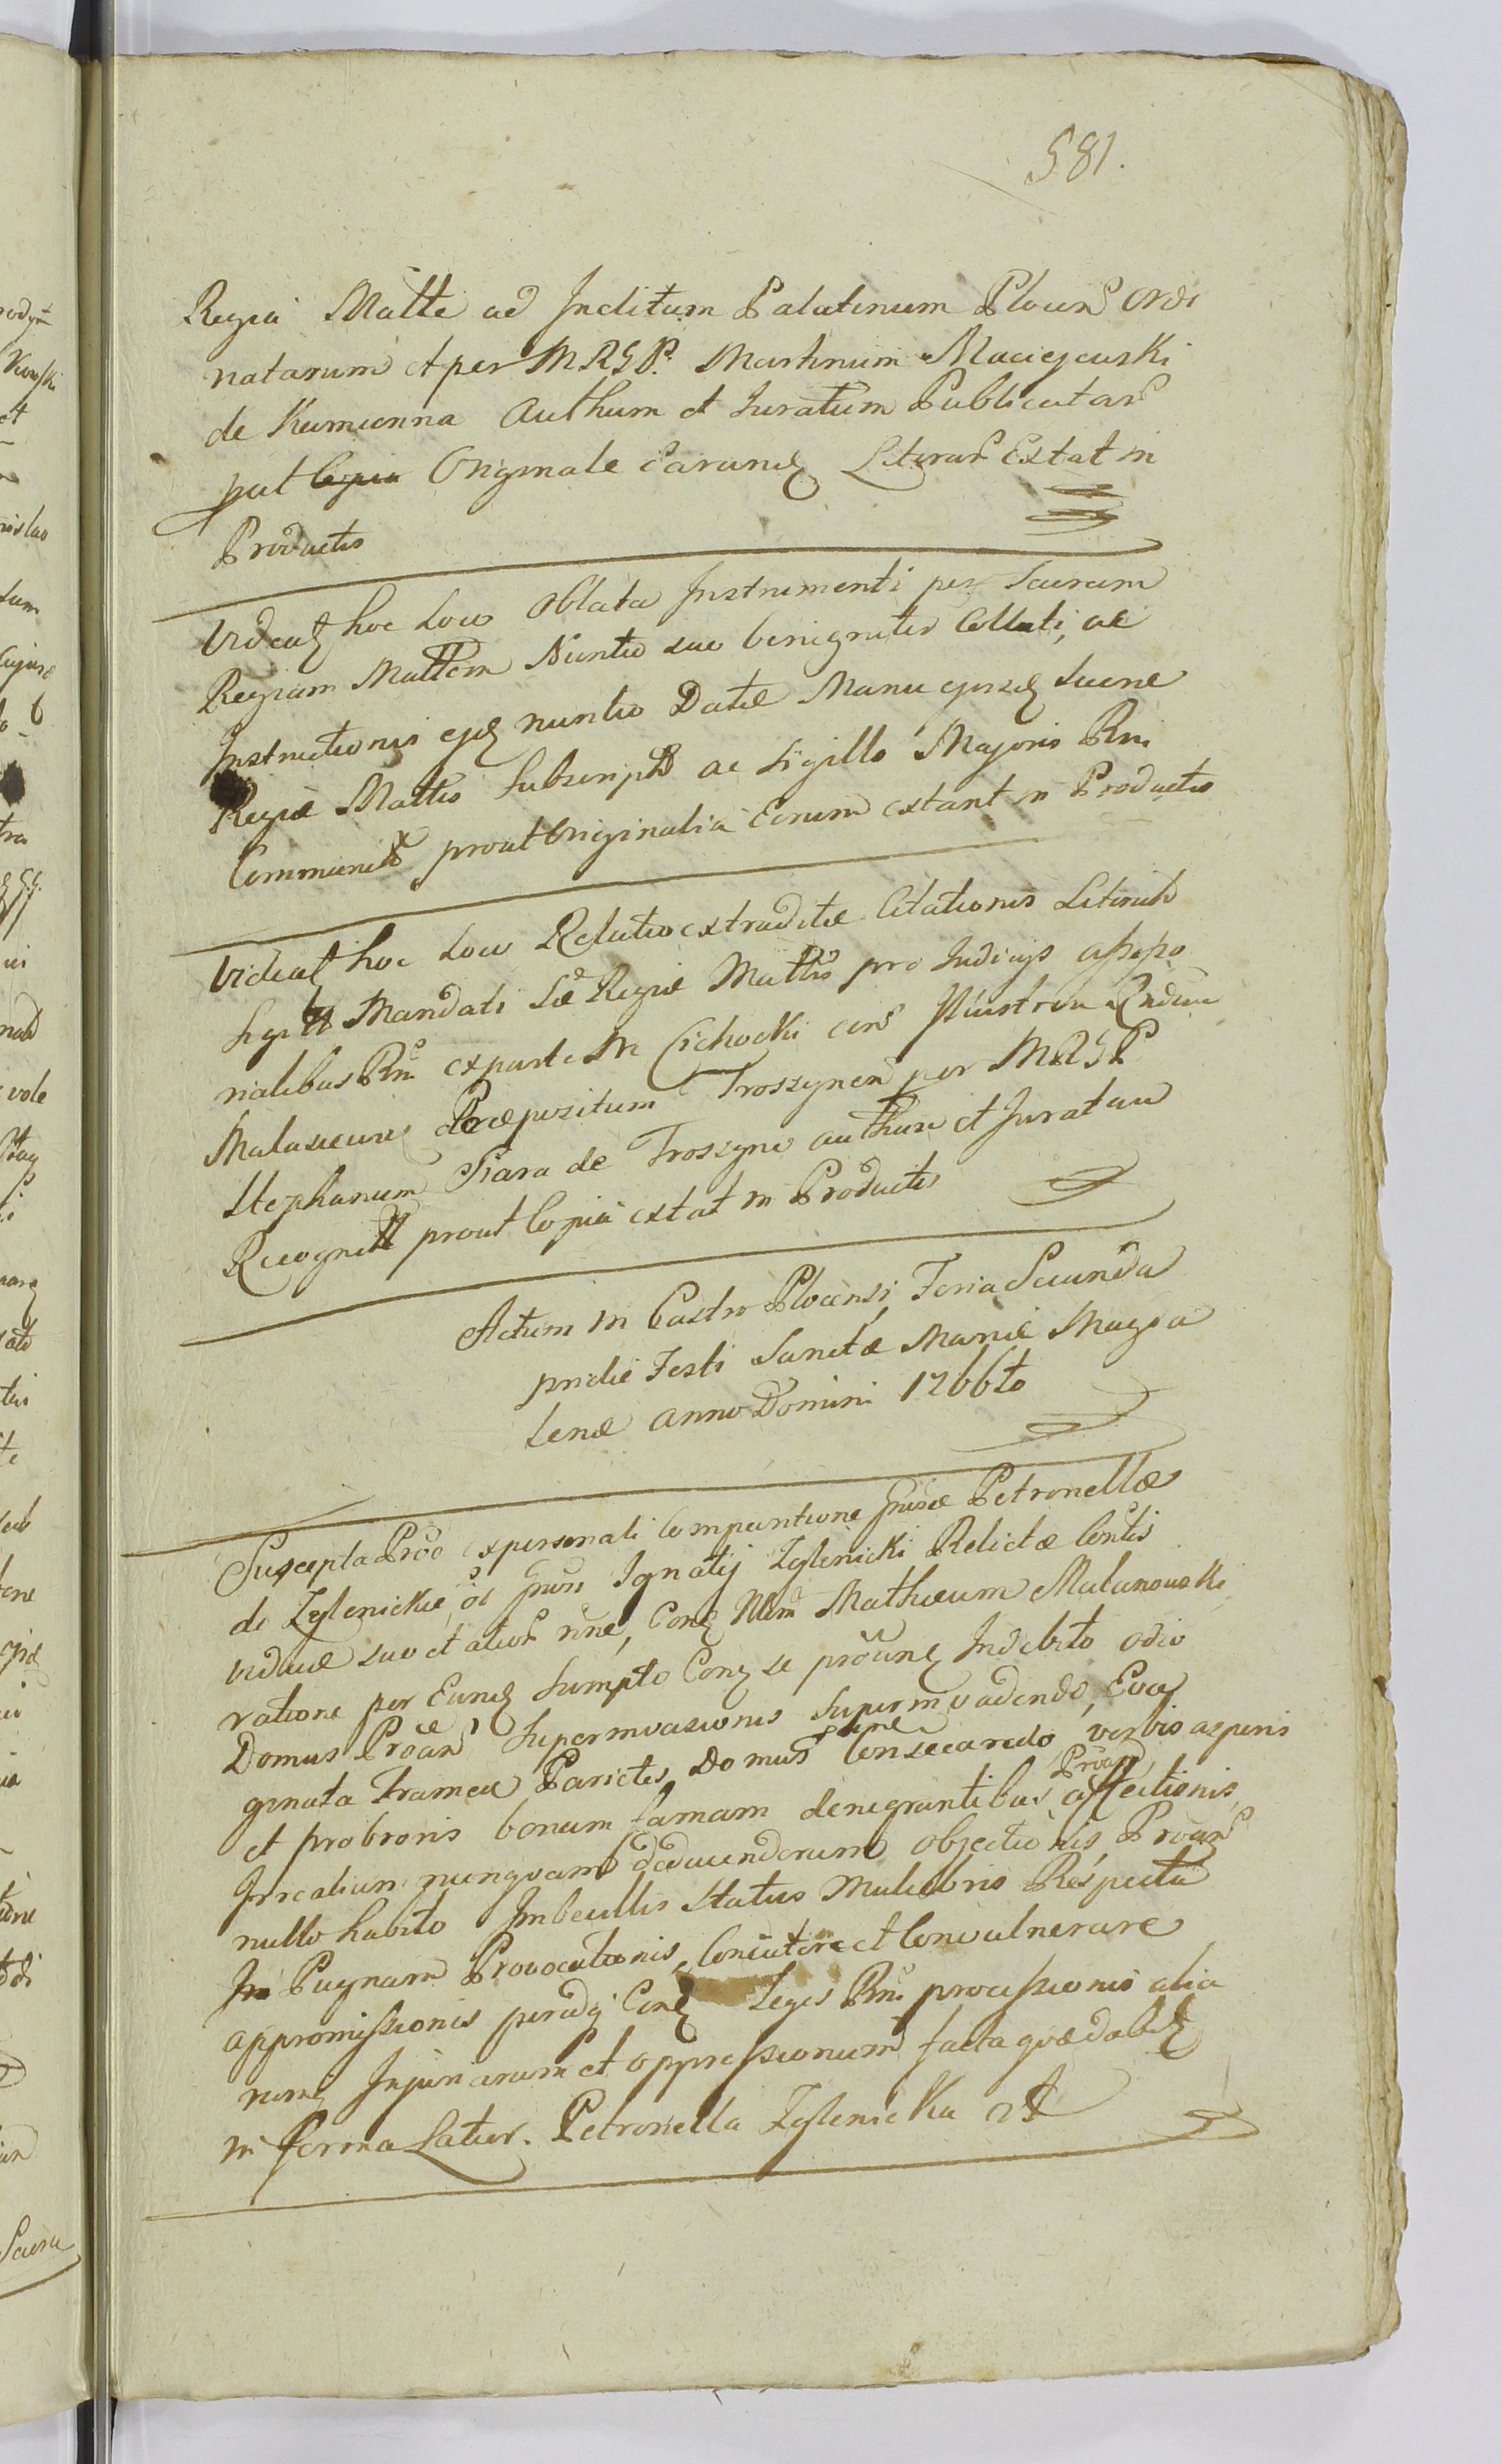 581.
Regia Matte ad Inclitum Palatinum Plocen ordi
natarum et per MRGP. Martinum Maciejewski
de Kamionna Authum et Juratum Publicatar
put Copia Originale earund Literar Extat in
Productis
Videat hoc Loco Oblata Instrumenti per Sacram
Regiam Mattem Nuntio suo benigniter Collati, ac
Instructionis ejd nuntio Datæ Manu ejusd Sacræ
Regiæ Mattis Subscript ac Sigillo Majoris Rni
Communit prout Originalia Eorum extant in Productis
Videat hoc Loco Relatio extraditæ Citationis Literis
Mandati Sæ Regiæ Mattis pro Judicijs assesso
rialibus Rni ex parte M Cichocki cons
Præpositum Troszynen per MRGP
Stephanum Piara de Troszyno authum et Juratum
Recognit prout Copia extat in Productis
Actum in Castro Plocensi, Feria Secunda
pridie Festi Sanctæ Mariæ Magda
lenæ anno Domini 1766to
Suscepta Prõo ex personali Comparitione Gnosæ Petronellæ
de Zglenickie, oi Gnosi Ignatij Zglenicki Relictæ Contis
viduæ suo et alior nne, Conq Mm Mathæum Malanowski
ratione per Eund Sumpto Conq se prõund Indebito odio
Domus Prõan Superinvasionis Superinvadendo, Eva
ginata Framea Parietes Domus sine Consecando verbis asperis
et probrosis bonam famam denegrantibus Prõan affectionis,
Irrealium nunquam deducendorum objectionis, Prõan
nullo habito Imbecillis Status Muliebris Respectu
In Pugnam Provocationis, Concutere et Convulnerare
appromissionis perind Cond Leges Rni processionis alia
rumq Injuriarum et oppressionum facta quædabit
in forma Latior. Petronella Zglenicka